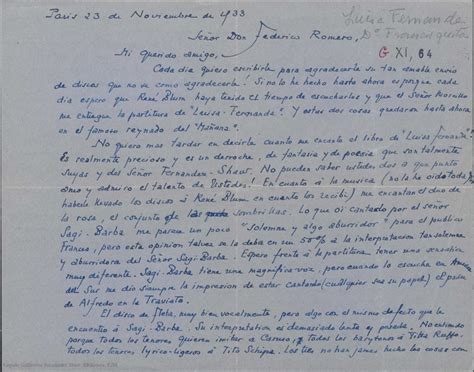 Paris 23 de Noviembre de 1933
Luisa Fernanda
Dª Francisquita
Señor Don Federico Romero,
G XI, 64
Mi querido amigo,
Cada dia quiero escribirle para agradecerle su tan amable envio
de discos que no se como agradecerle! Si no lo he hecho hasta ahora es porque cada
dia espero que René Blum haya tenido el tiempo de escucharles y que el Señor Morillo
me entregue la partitura de "Luisa-Fernanda". Y estas dos cosas quedaron hasta ahora
en el famoso reynado del "Mañana".
No quiero mas tardar en decirle cuanto me encanta el libro de "Luisa Fernanda"
Es realmente precioso y es un derroche, de fantasia y de poesia que son talmente
suyas y del Señor Fernandez-Shaw. No pueden saber ustedes a que punto
amo y admiro el talento de Ustedes. En cuanto a la musica (no la he oido toda
habeis levado los discos à René Blum en cuanto los recibi) me encantan el duo de
la rosa, el conjunto de las sombrillas. Lo que oi cantado por el señor
Sagi-Barba me parece un poco "solemne y algo aburrido" para el publico
Frances, pero esta opinion talvez se la deba en un 50% a la interpretacion tan solemne
y aburridora del Señor Sagi-Barba. Espero frente à la partitura, tener una sensacion
muy diferente. Sagi-Barba tiene una magnifica voz, pero cuando lo escuche en America
del Sur me dio siempre la impresion de estar cantando (cualquier sea su papel) El padre
de Alfredo en la Traviata.
El disco de Fleta, muy bien vocalmente, pero algo con el mismo defecto que le
encuentro à Sagi-Barba. Su interpretation es demasiado lenta y pesada. No entiendo
porque todos los tenores quieren imitar a Caruso, todos los barytonos à Titta Ruffo
todos los tenores lyrico-ligeros à Tito Schipa. Los tres no han jamás hecho las cosas con